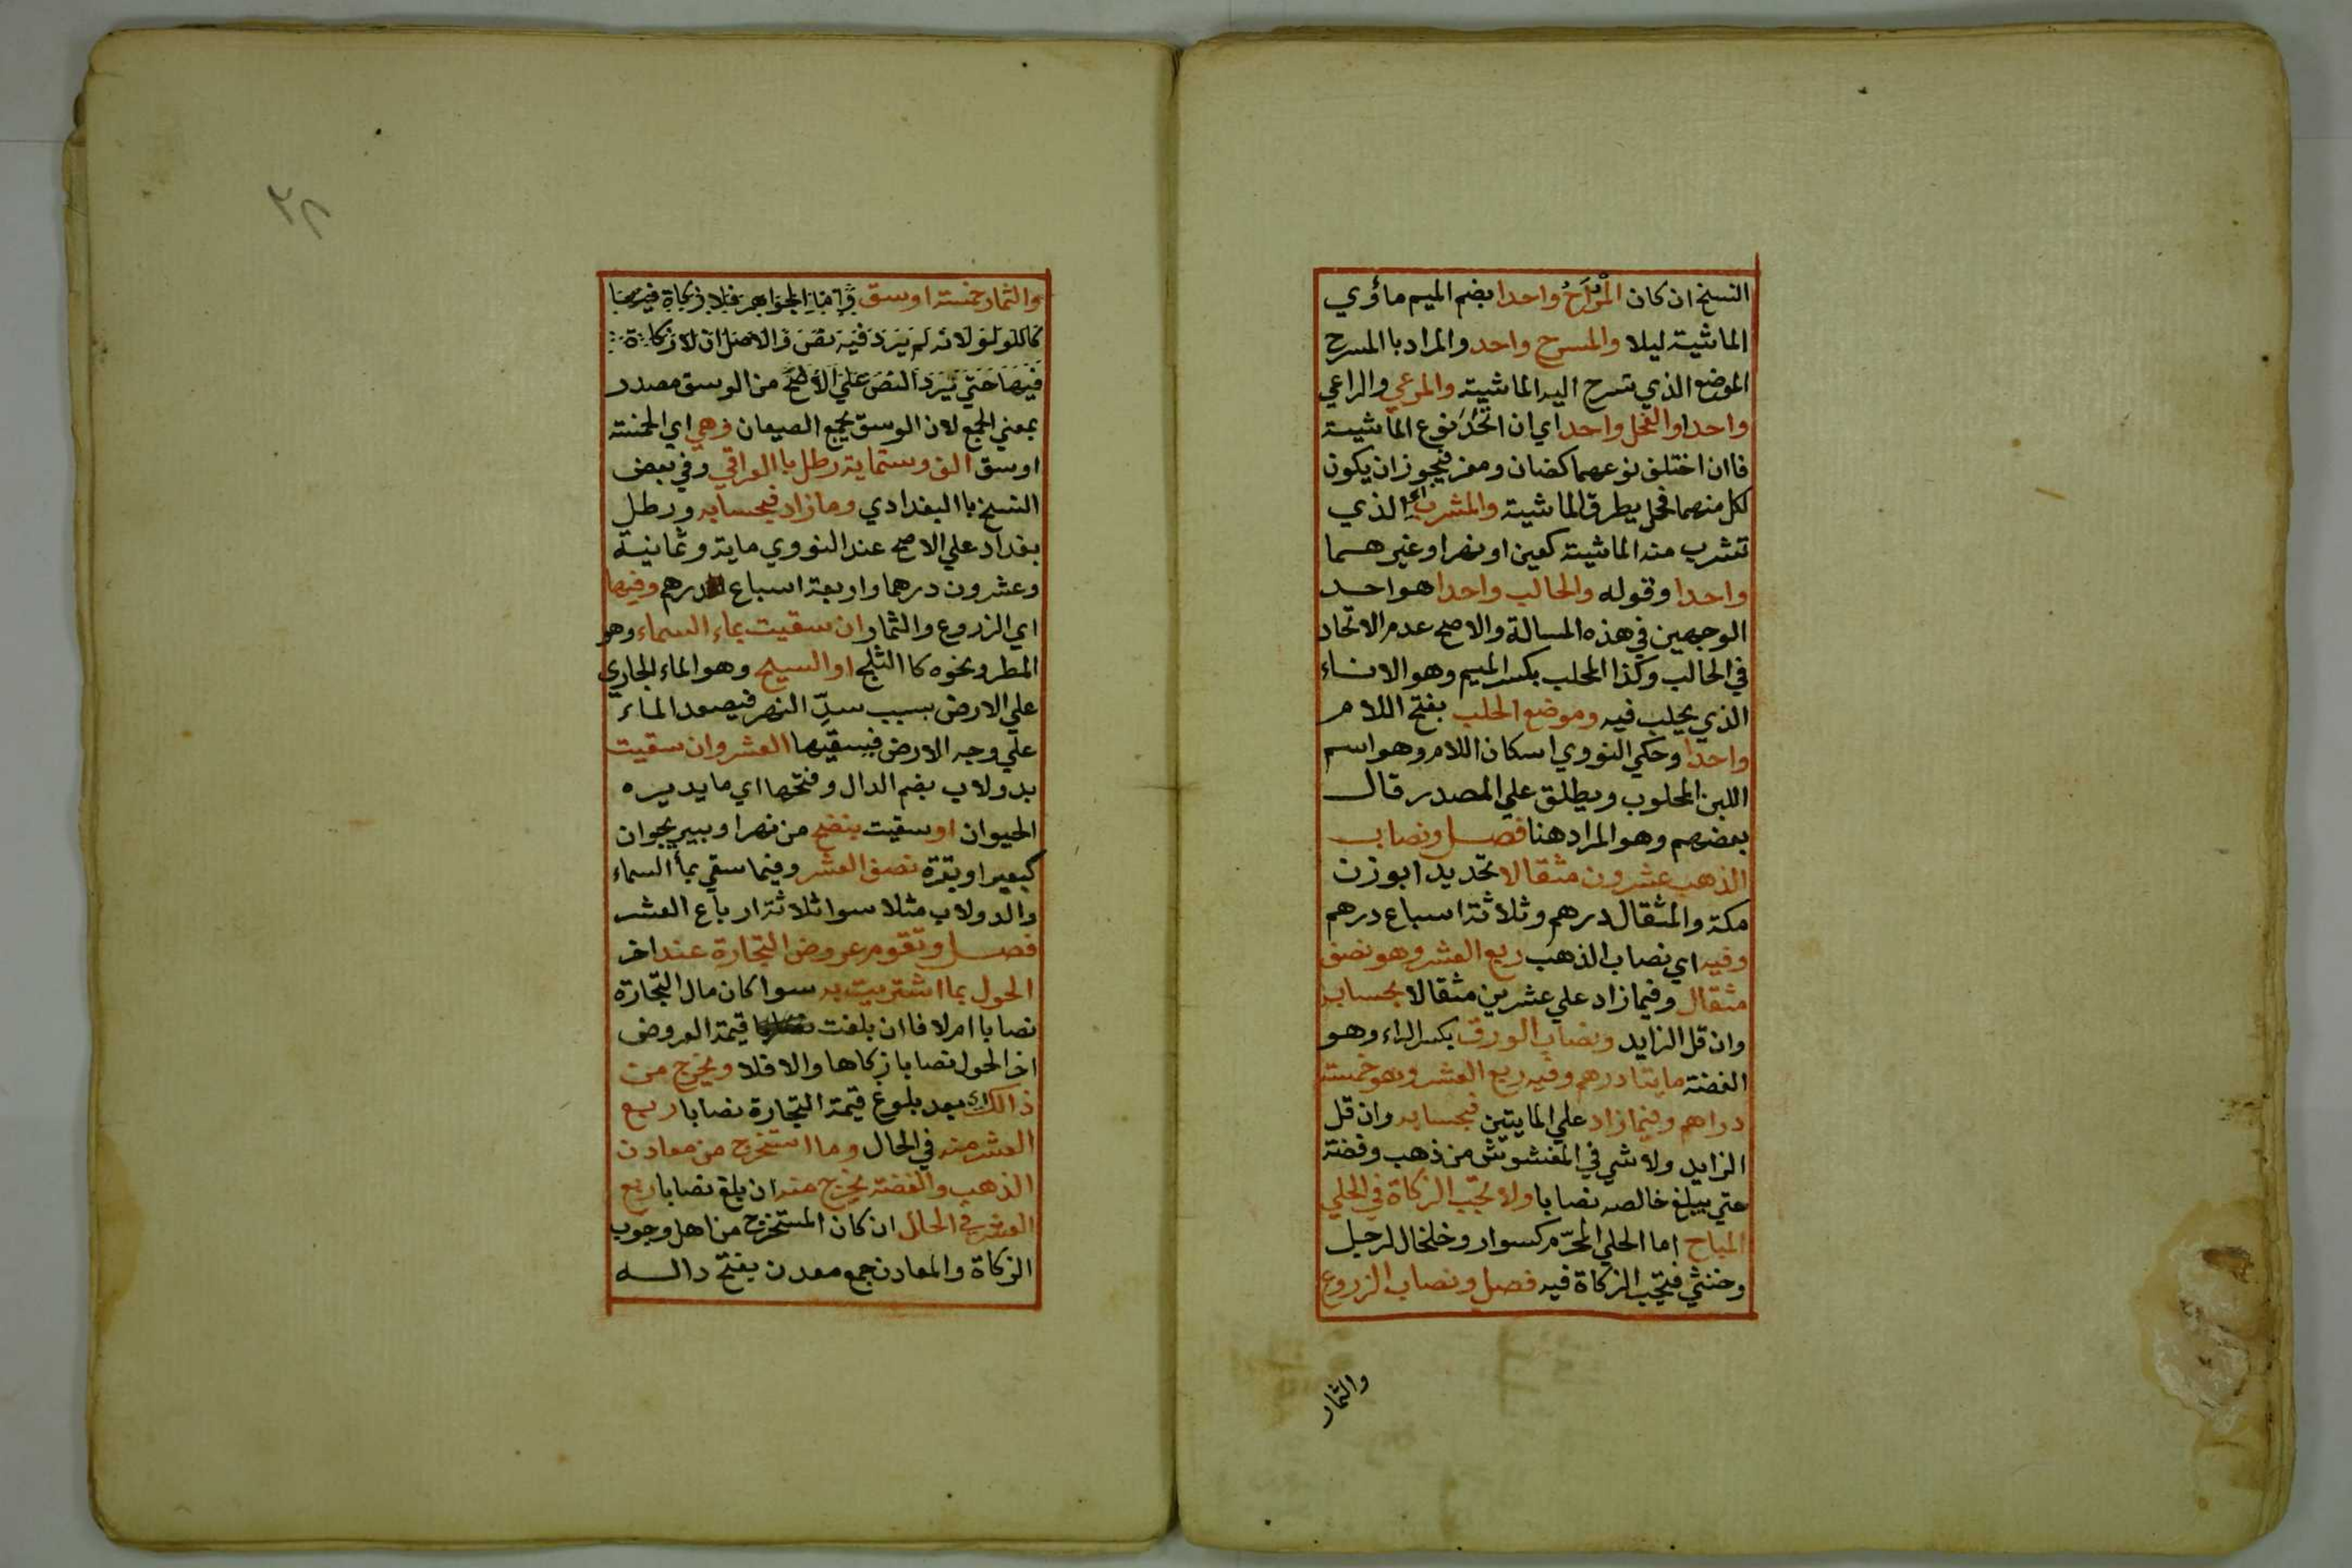 النسخ ان كان المُرَاحُ واحدا بضم الميم مأوي
الماشية ليلا والمسرح واحد والمراد باالمسرح
الموضع الذي تسرح اليه الماشية والمرعي والراعي
واحدا والفحل واحدا اي ان اتحد نوع الماشية
فاان اختلف نوعهما كضان ومعز فيجوز ان يكون
لكل منهما فحل يطرق الماشية والمشرب اي الذي
تشرب منه الماشية كعين او نهر او غيرهما
واحدا وقوله والحالب واحدا هو احد
الوجهين في هذه المسالة والاصح عدم الاتحاد
في الحالب وكذا المحلب بكسر الميم وهو الاناء
الذي يحلب فيه وموضع الحلب بفتح اللام
واحدا وحكي النووي اسكان اللام وهو اسم
اللبن المحلوب ويطلق علي المصدر قال
بعضهم وهو المراد هنا فصل ونصاب
الذهب عشرون مثقالا تحديدا بوزن
مكة والمثقال درهم وثلاثة اسباع درهم
وفيه اي نصاب الذهب ربع العشر وهو نصف
مثقال وفيما زاد علي عشرين مثقالا بحسابه
وان قل الزايد ونصاب الورق بكسر الراء وهو
الفضة مايتا درهم وفيه ربع العشر وهو خمسة
دراهم وفيما زاد علي المايتين فبحسابه وان قل
الزايد ولا شي في المغشوش من ذهب وفضة
حتي يبلغ خالصه نصابا ولا تجب الزكاة في الحلي
المباح اما الحلي المحرّم كسوار وخلخال لرجل
وخنثي فتجب الزكاة فيه فصل ونصاب الزروع
والثمار
٣٨
والثمار خمسة اوسق الجواهر فلا زكاة فيها
كاللولو لانه لم يرد فيه نص والاصل ان لا زكاة
فيها حتي يرد النص علي الاصح من الوسق مصدر
بمعني الجمع لان الوسق يجمع الصيعان وهي اي الخمسة
اوسق الف وستماية رطل باالعراقي وفي بعض
النسخ باالبغدادي وما زاد فبحسابه ورطل
بغداد علي الاصح عند النووي ماية وثمانية
وعشرون درهما واربعة اسباع درهم وفيها
اي الزروع والثمار ان سقيت بماء السماء وهو
المطر ونحوه كاالثلج او السيح وهو الماء الجاري
علي الارض بسبب سدّ النهر فيصعد الماء
علي وجه الارض فيسقيها العشر وان سقيت
بدولاب بضم الدال وفتحها اي ما يديره
الحيوان او سقيت بنضح من نهر او بير بحيوان
كبعير او بقرة نصف العشر وفيما سقي بماء السماء
والدولاب مثلا سوا ثلاثة ارباع العشر
فصل وتقوم عروض التجارة عند اخر
الحول بما اشتريت به سوا كان مال التجارة
نصابا ام لا فاان بلغت قيمة العروض
اخر الحول نصابا زكاها والا فلا ويخرج من
ذالك اي بعد بلوغ قيمة التجارة نصابا ربع
العشر منه في الحال وما استخرج من معادن
الذهب والفضة يخرج منه ان بلغ نصابا ربع
العشر في الحال ان كان المستخرج من اهل وجوب
الزكاة والمعادن جمع معدن بفتح داله